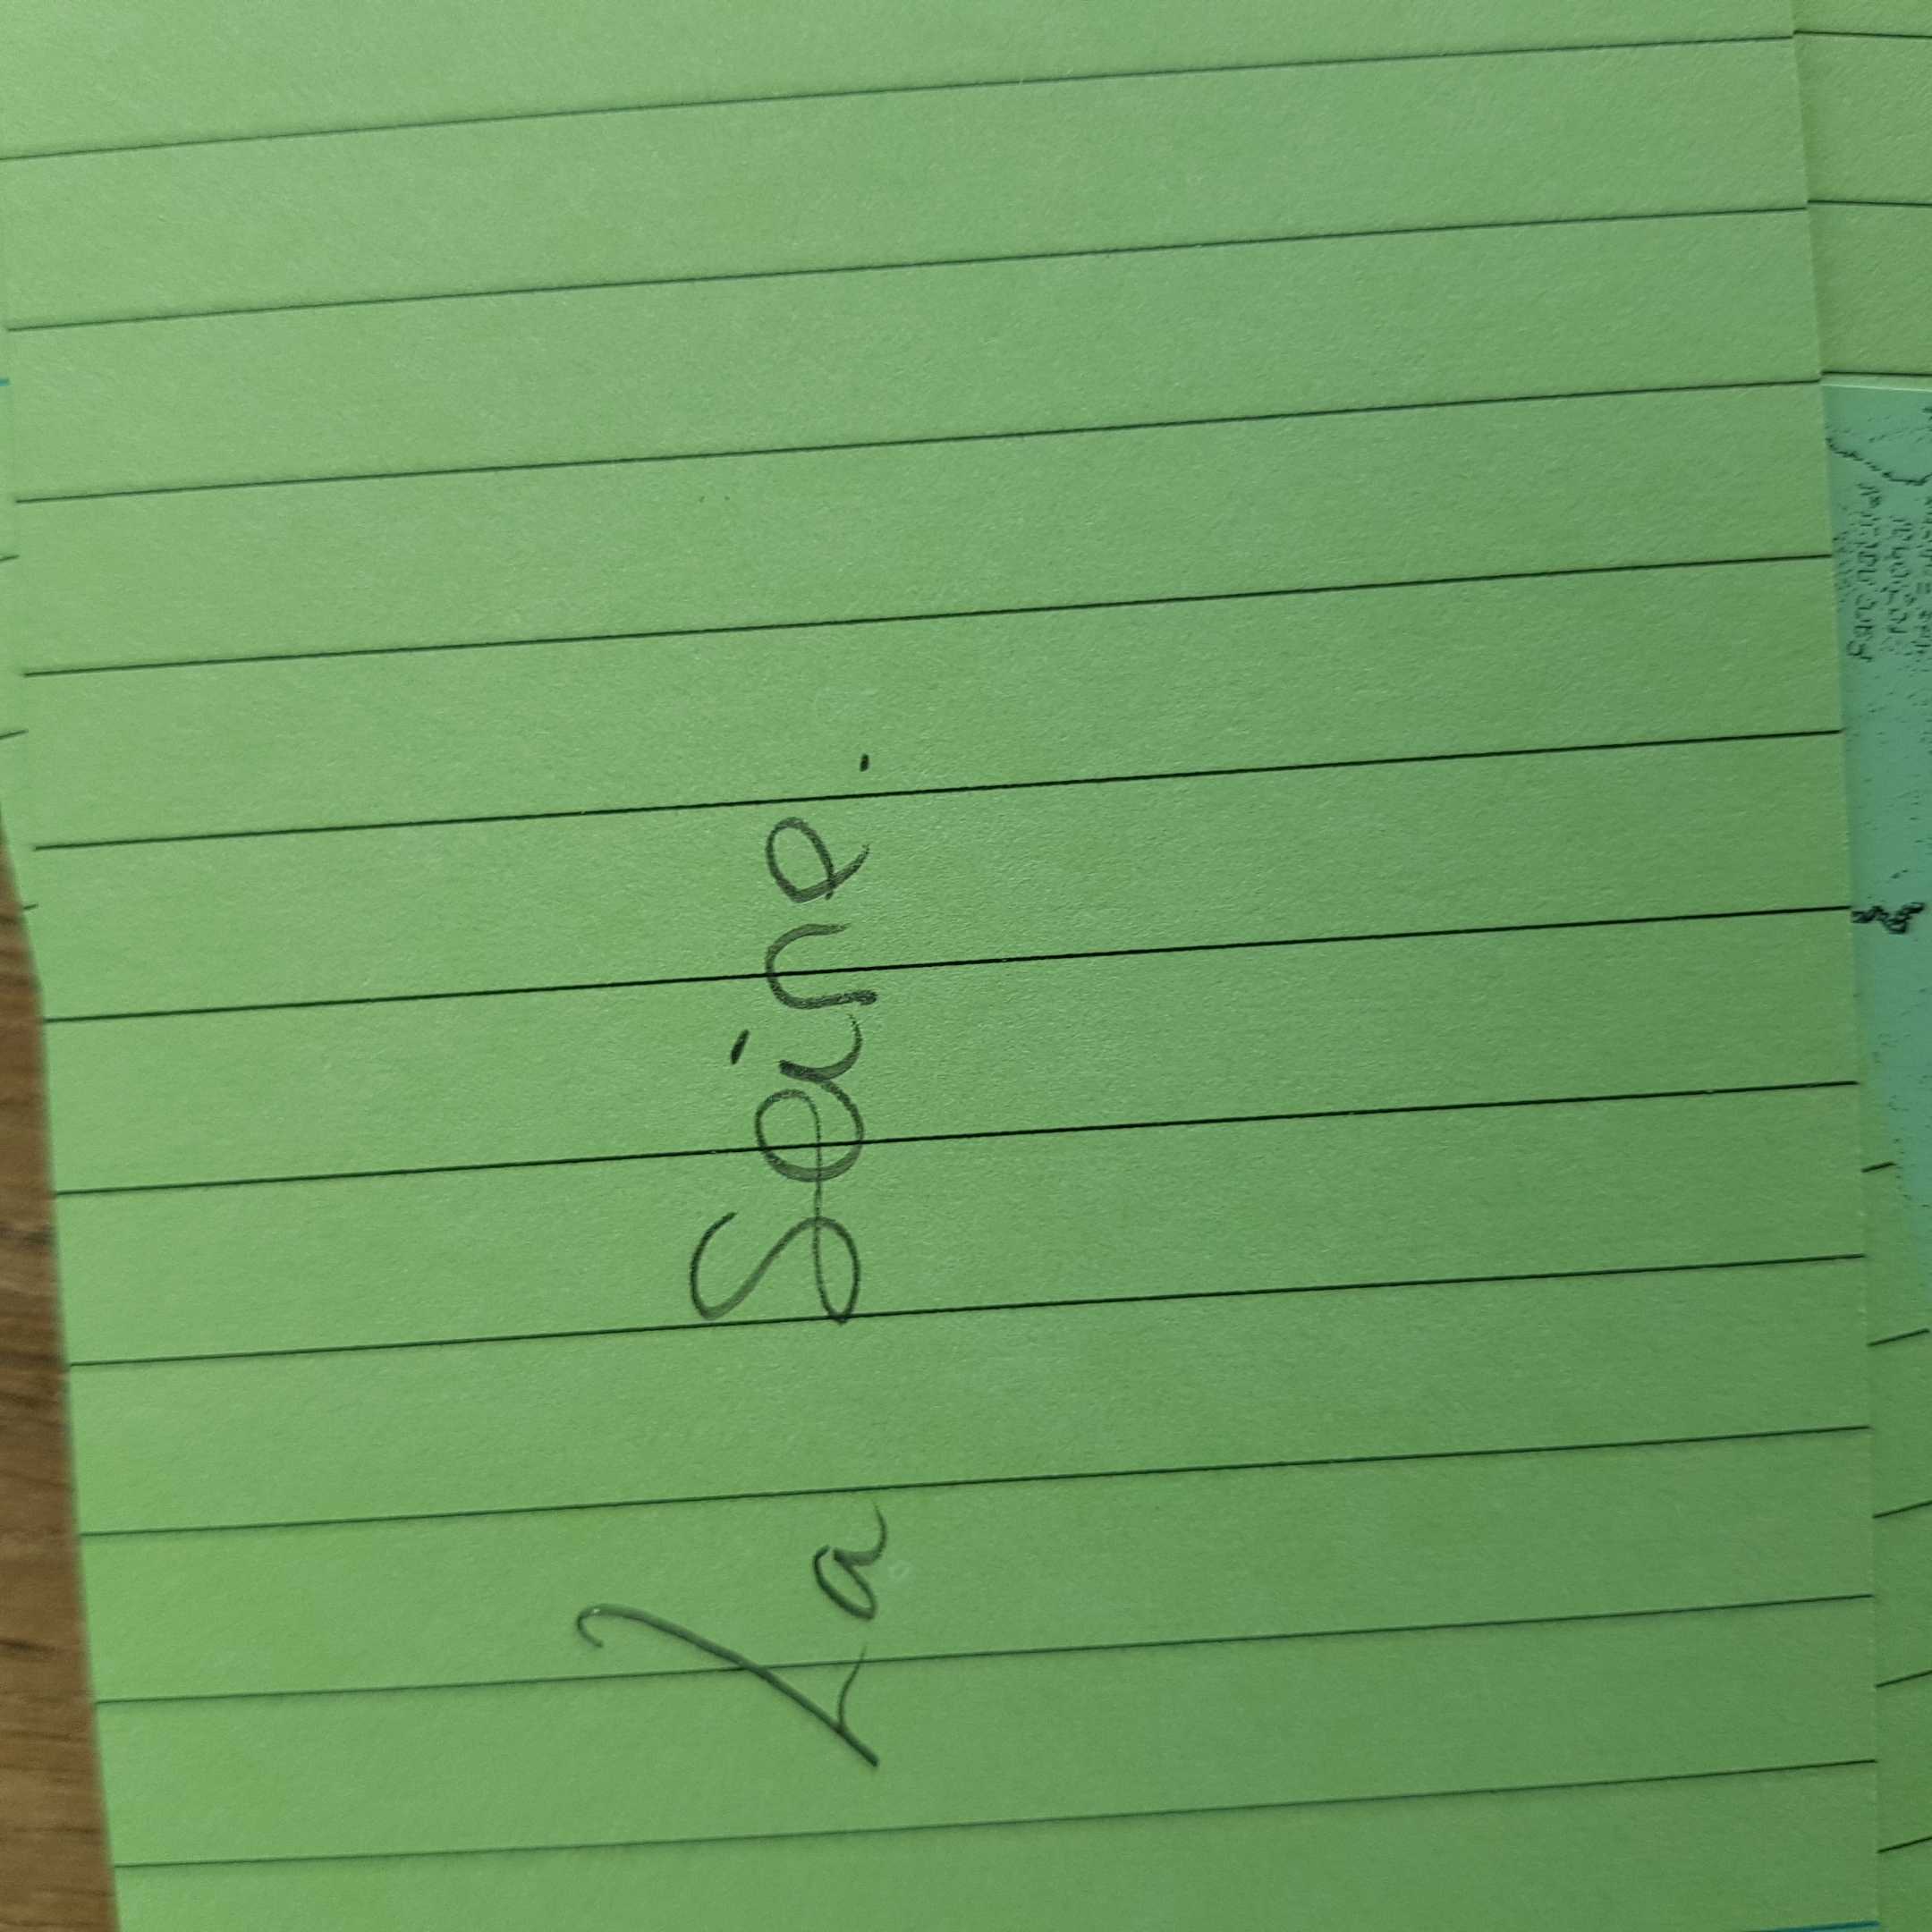 La Seine.